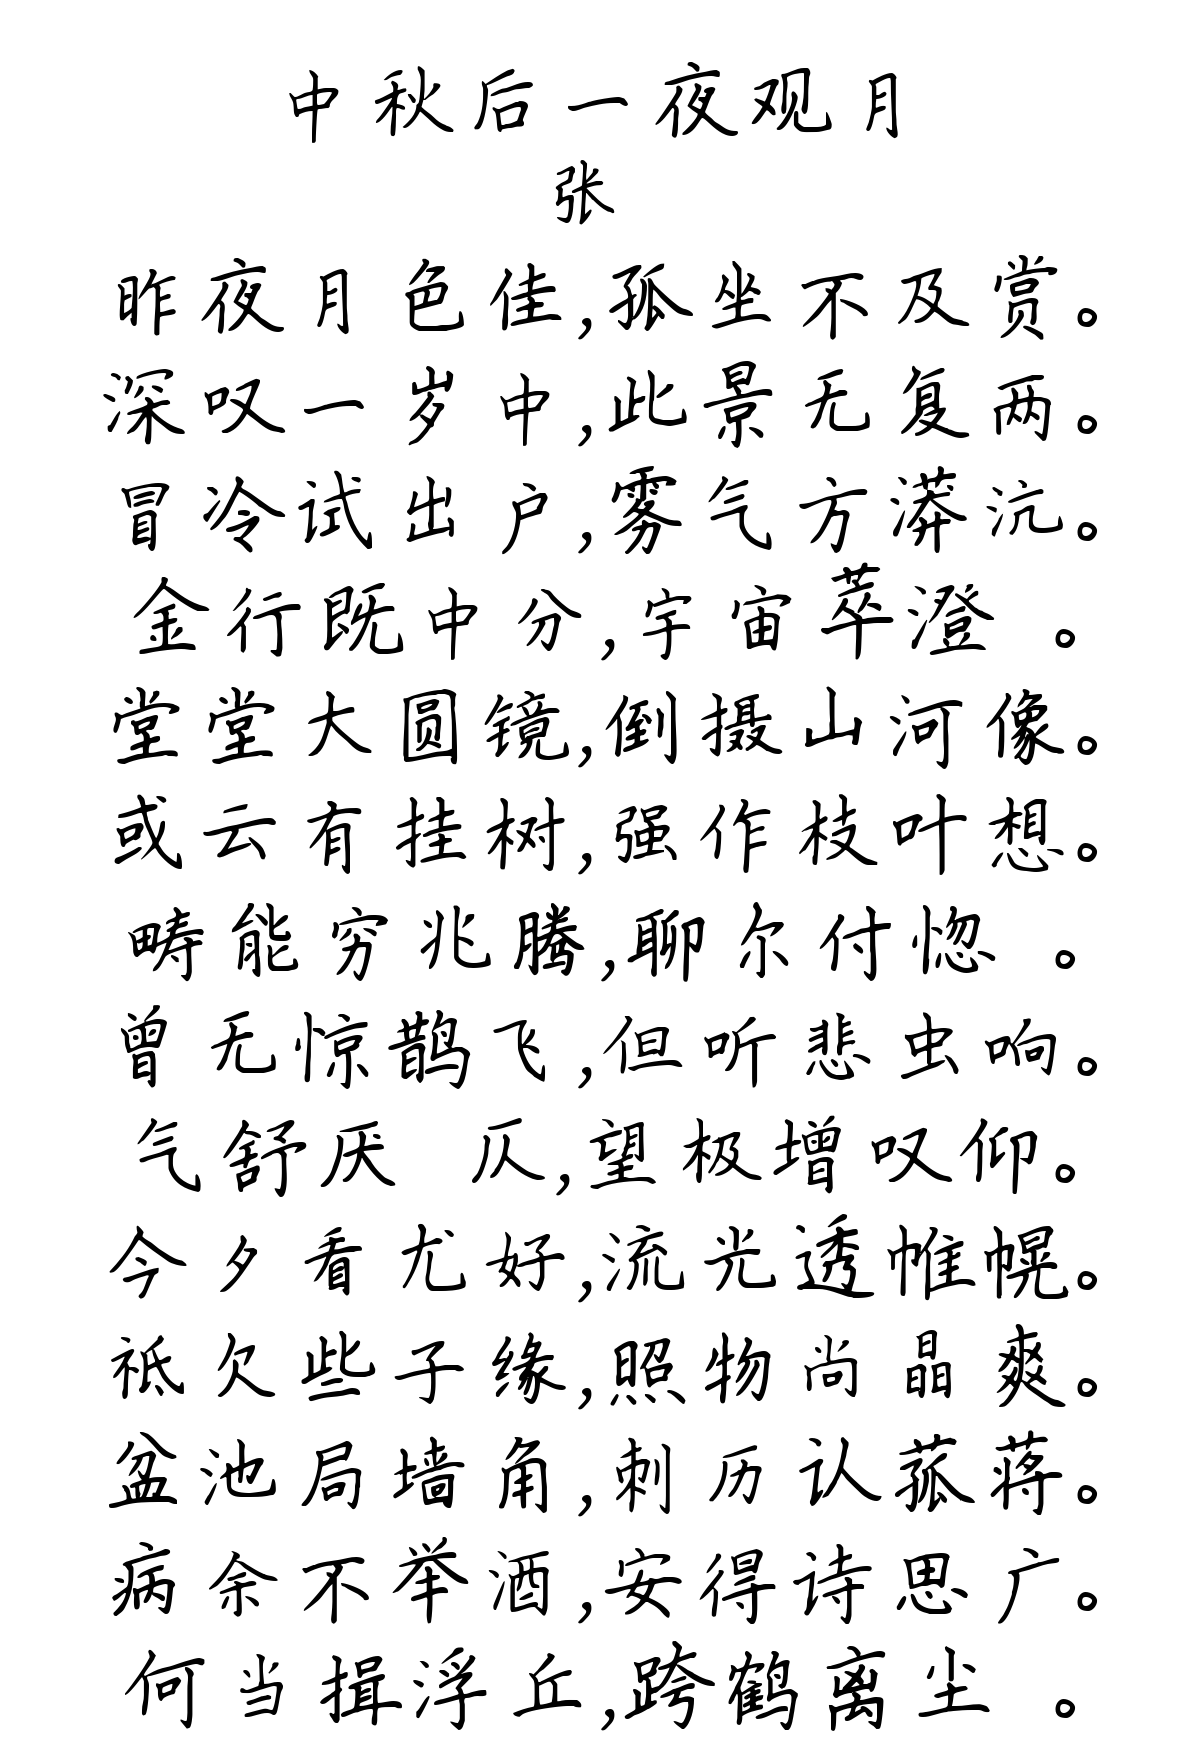 中秋后一夜观月
张
昨夜月色佳,孤坐不及赏。
深叹一岁中,此景无复两。
冒冷试出户,雾气方漭沆。
金行既中分,宇宙萃澄 。
堂堂大圆镜,倒摄山河像。
或云有挂树,强作枝叶想。
畴能穷兆腾,聊尔付惚 。
曾无惊鹊飞,但听悲虫响。
气舒厌 仄,望极增叹仰。
今夕看尤好,流光透帷幌。
祗欠些子缘,照物尚晶爽。
盆池局墙角,刺历认菰蒋。
病余不举酒,安得诗思广。
何当揖浮丘,跨鹤离尘 。